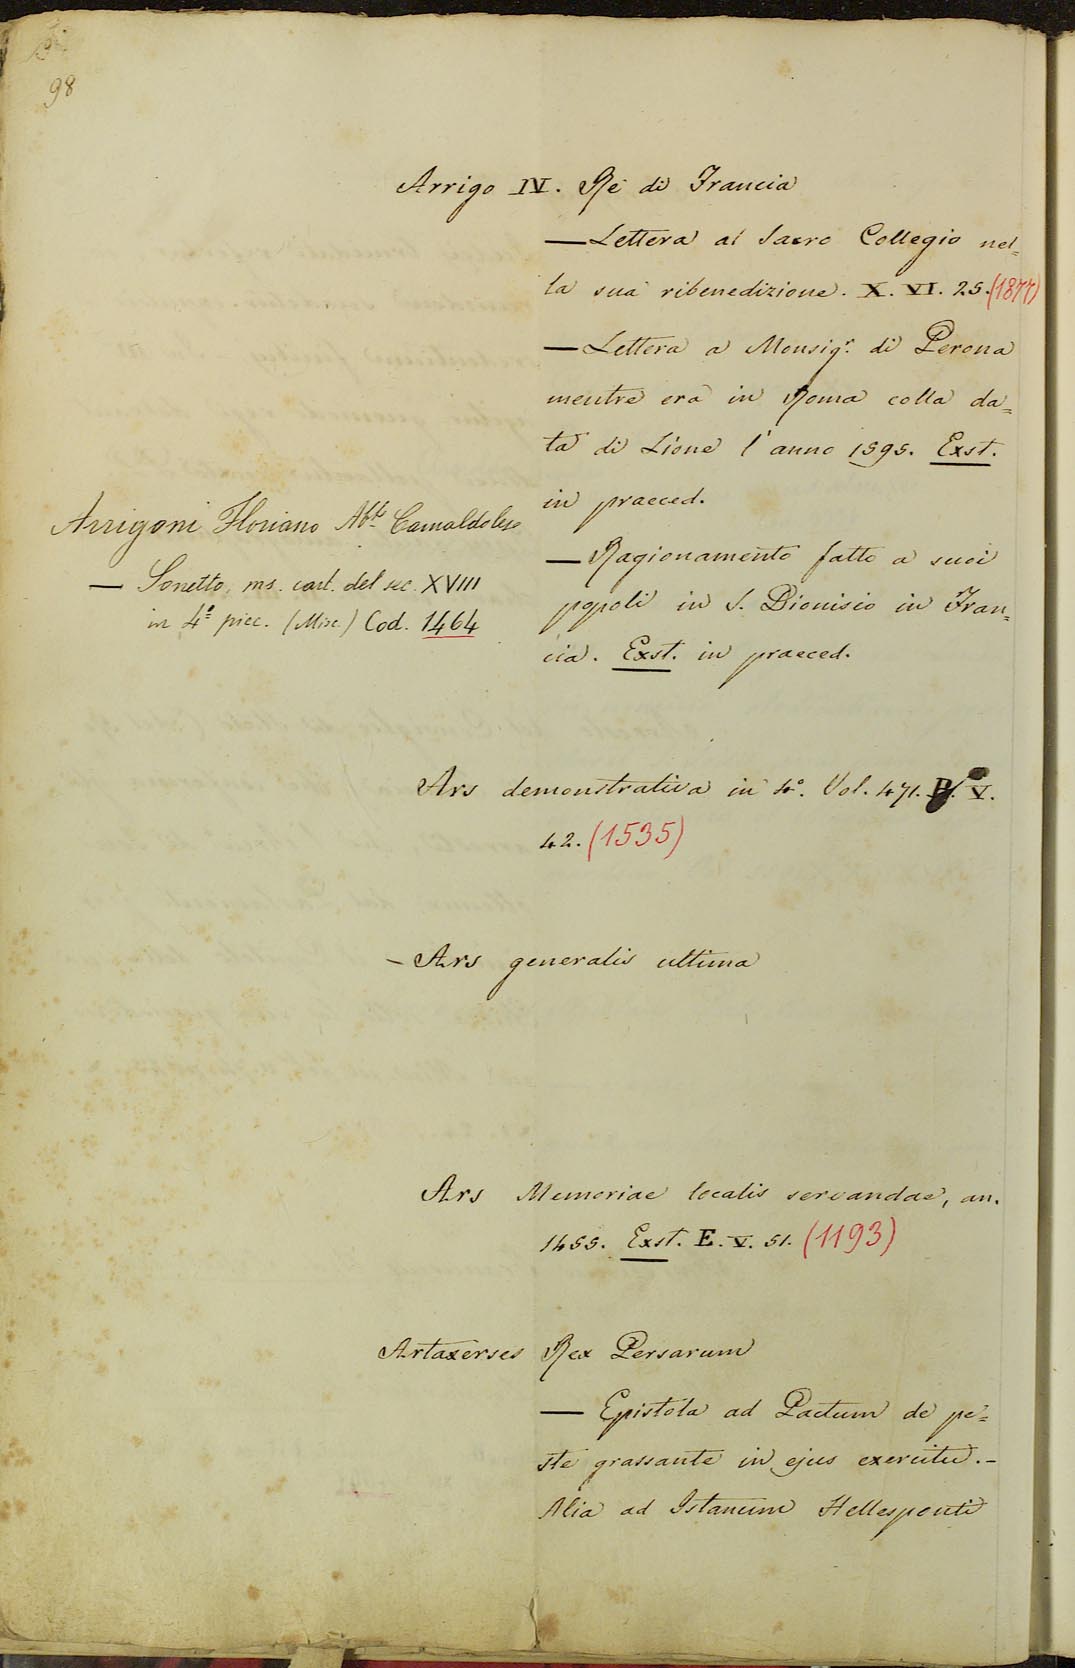 98
Arrigo IV. Re di Francia
— Lettera al Sacro Collegio nel=
la sua ribenedizione. X. VI. 25. (1877)
— Lettera a Monsigr. di Perona
mentre era in Roma colla da=
ta di Lione l'anno 1595. Exst.
in praeced.
— Ragionamento fatto a suoi
popoli in S. Dionisio in Fran=
cia. Exst. in praeced.
Arrigoni Floriano Abte Camaldolese
— Sonetto, ms. cart. del sec. XVIII
in 4º picc. (Misc.) Cod. 1464
Ars demonstrativa in 4º. Vol. 471. V.
42. (1535)
- Ars generalis ultima
Ars Memoriae localis servandae, an.
1455. Exst. E. V. 51. (1193)
Artaxerses Rex Persarum
— Epistola ad Paetum de pe=
ste grassante in ejus exercitu. -
Alia ad Istanum Hellesponti